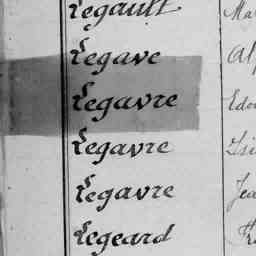 Legault Ma
Legave Al
Legavre Edo
Legavre Isi
Legavre Jea
Legeard Fr